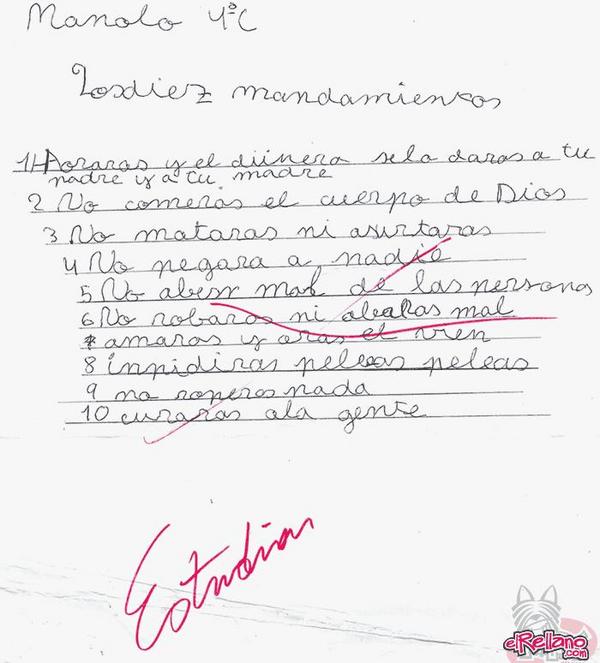 Manolo 4ºC
Los diez mandamientos
1 Horaras y el diinera se la daras a tu
padre y a tu madre
2 No comeras el cuerpo de Dios
3 No mataras ni asustaras
4 No pegara a nadie
5 No aber mal de las personas
6 No robaras ni
amaras y aras el vien
8 inpidiras peleas peleas
9 no roperas nada
10 curaras ala gente
Estudiar
elRellano.com